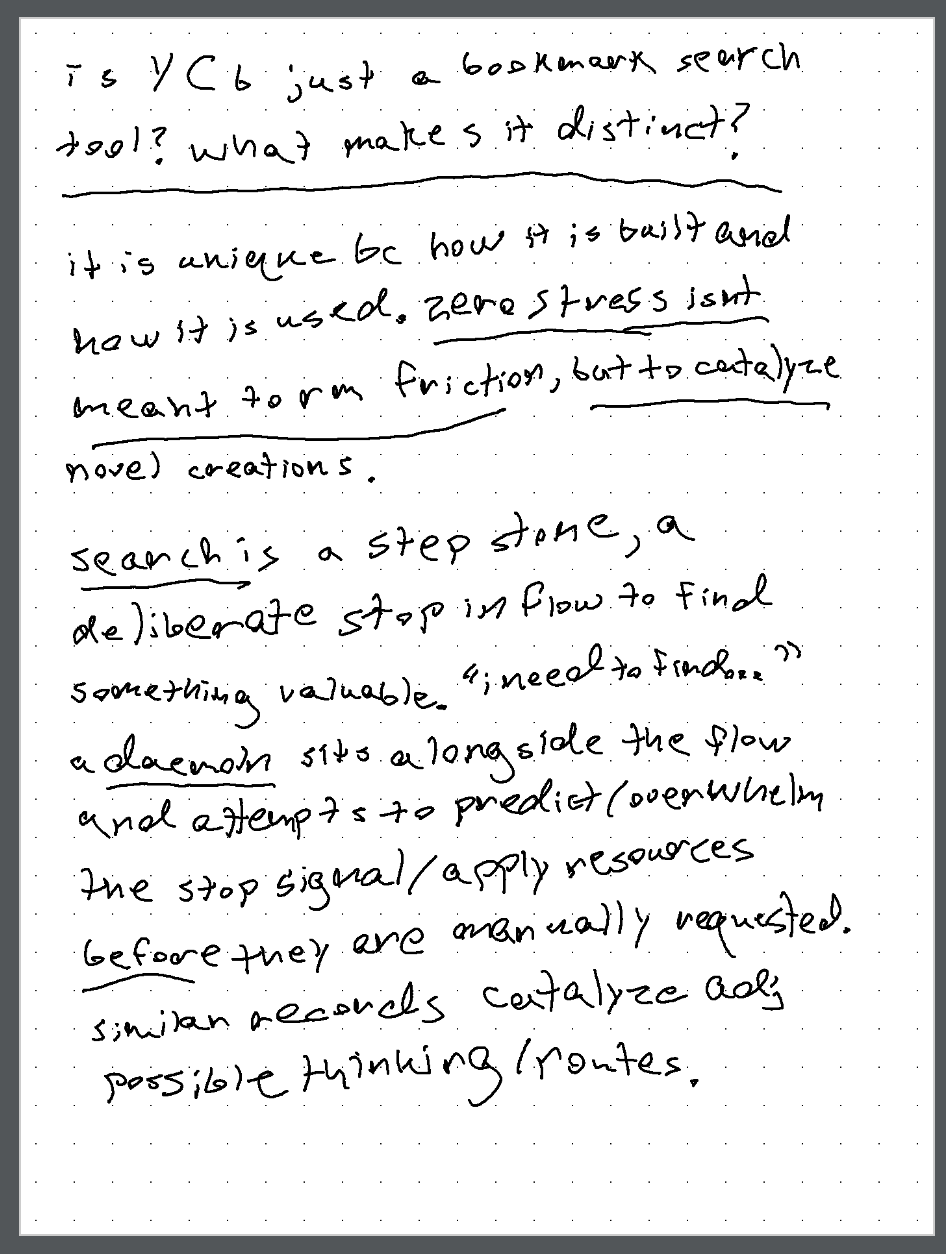 is YCb just a bookmark search
tool? what makes it distinct?
it is unique bc how it is built and
how it is used. zero stress isnt
meant to rm friction, but to catalyze
novel creations.
search is a step stone, a
deliberate stop in flow to find
something valuable. "i need to find..."
a daemon sits alongside the flow
and attempts to predict/overwhelm
the stop signal/apply resources
before they are manually requested.
similar records catalyze adj
possible thinking/routes.